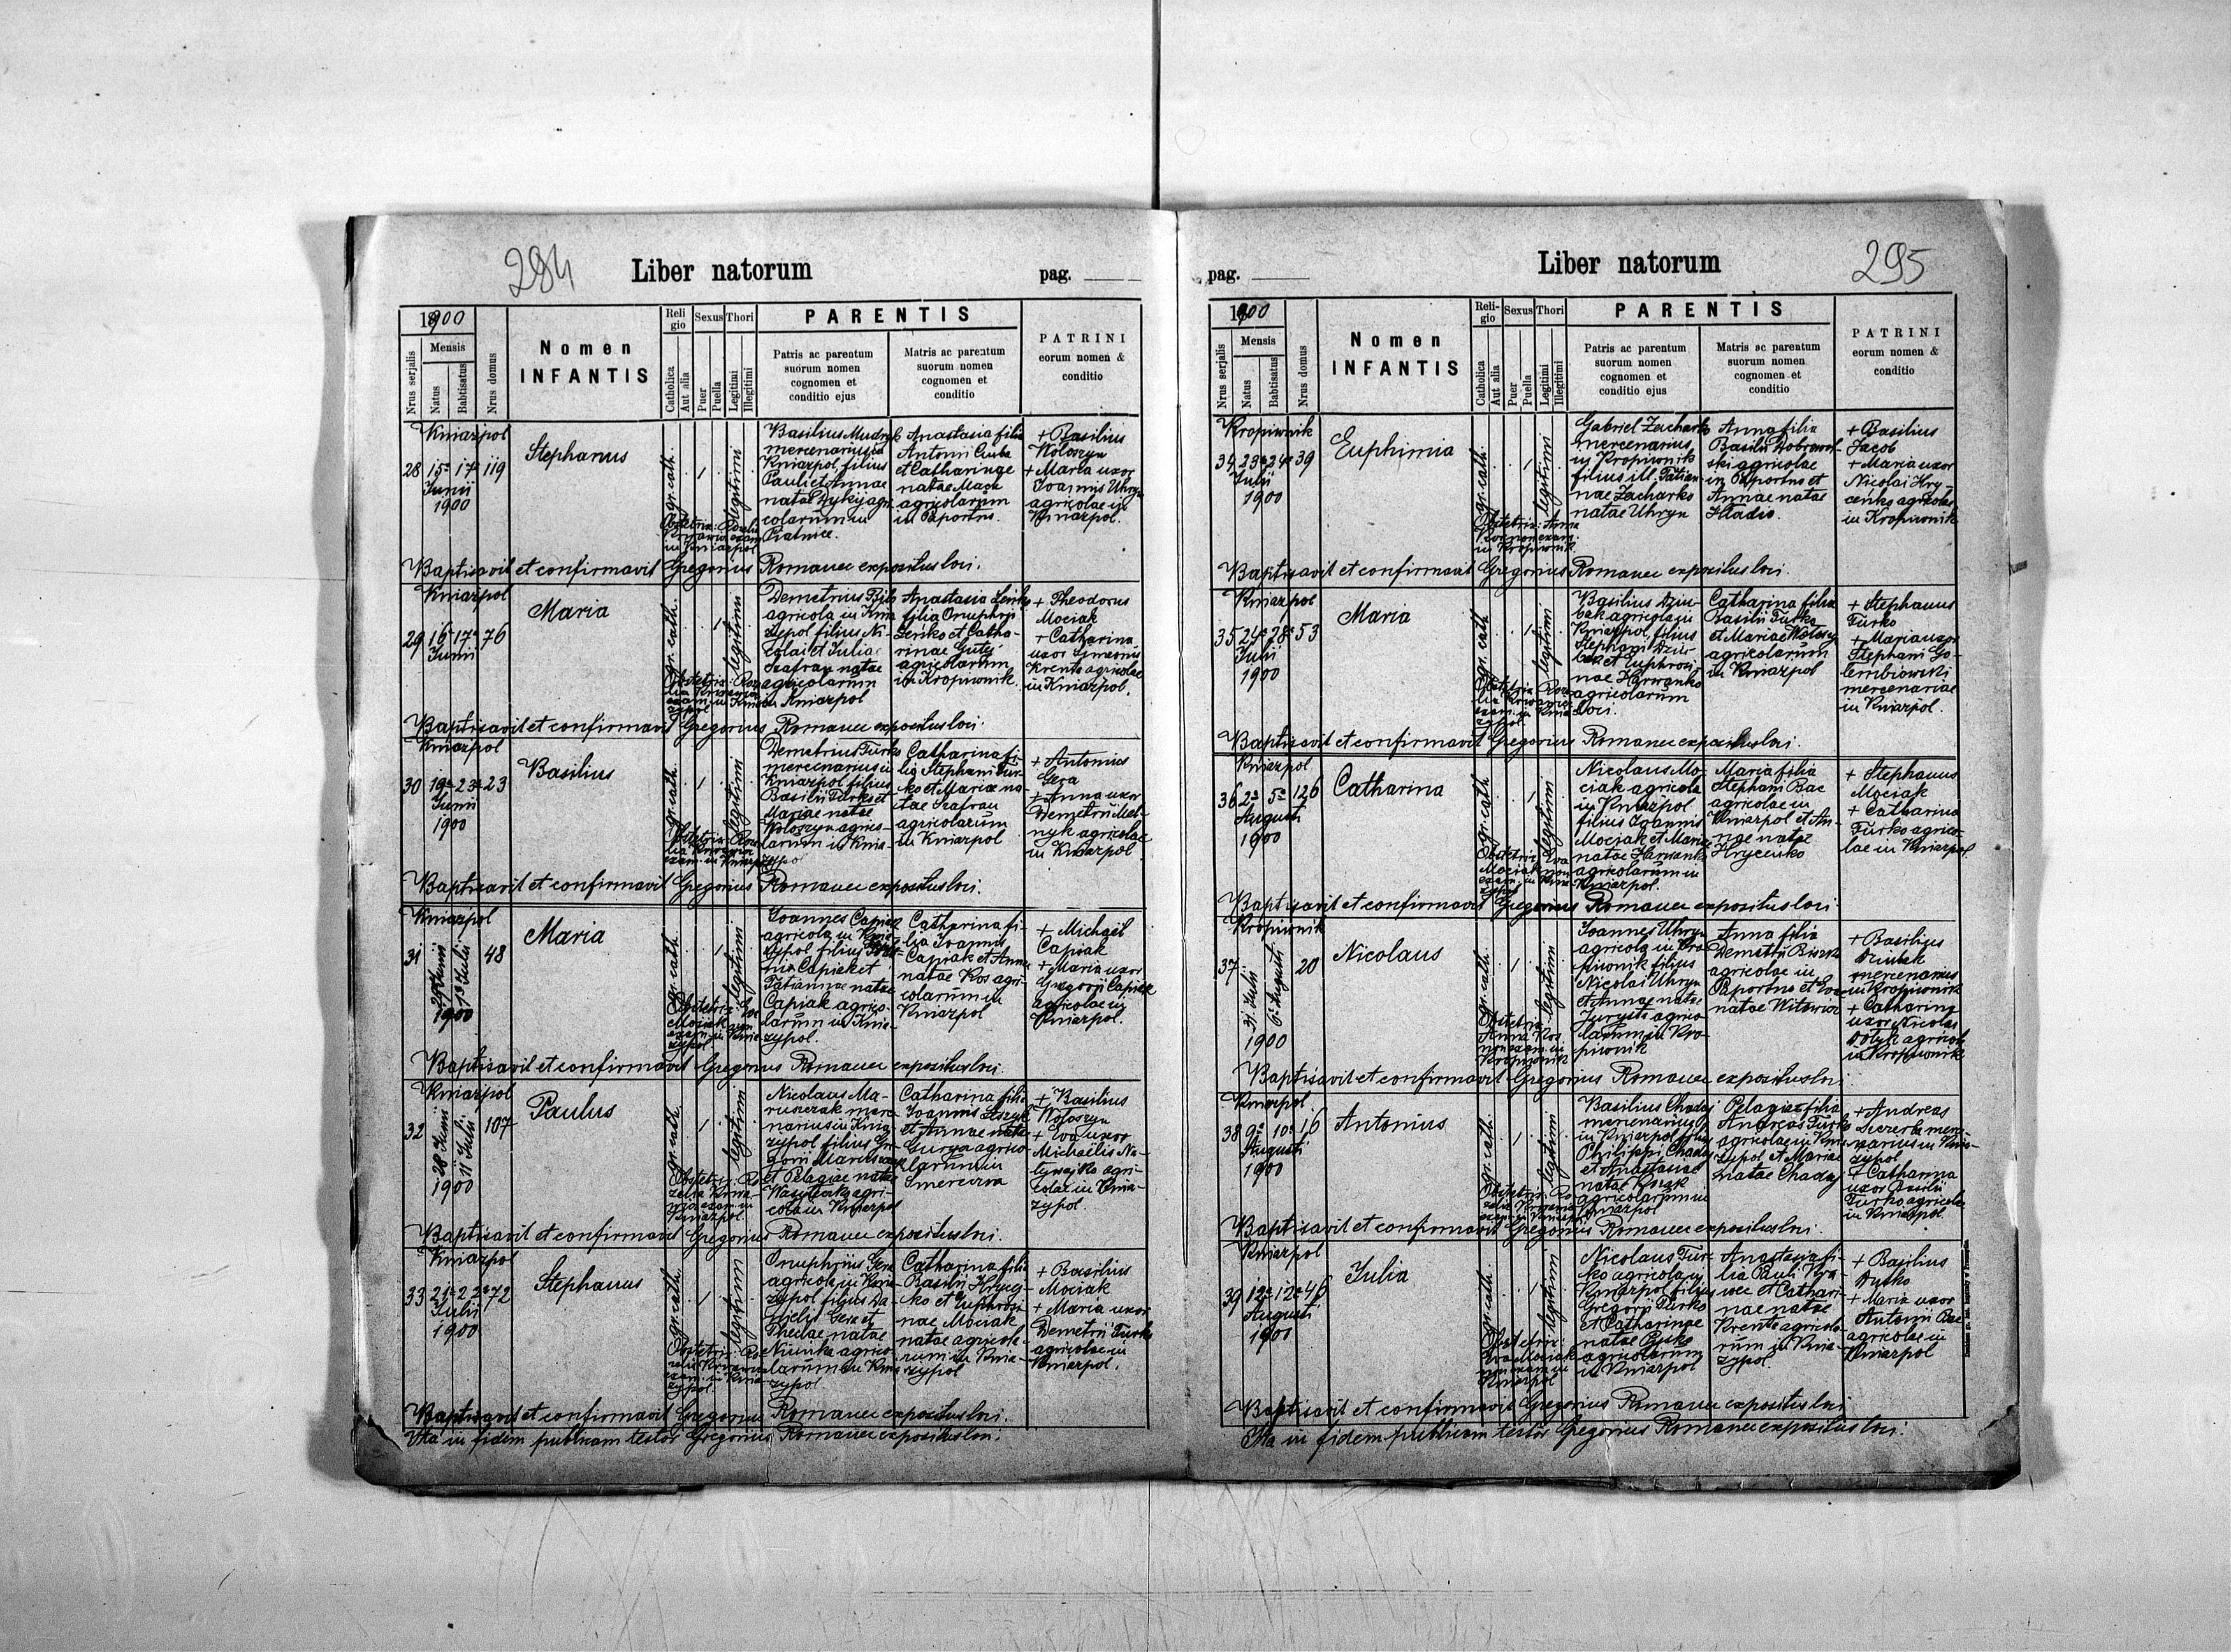 284
Liber natorum
pag.
1900
Mensis
Nrus serjalis
Natus
Babtisatus
Nrus domus
Nomen
INFANTIS
Religio
Catholica
Aut alia
Sexus
Puer
Puella
Thori
Legitimi
Illegitimi
PARENTIS
Patris ac parentum
suorum nomen
cognomen et
conditio ejus
Matris ac parentum
suorum nomen
cognomen et
conditio
PATRINI
eorum nomen &
conditio
Kniazpol
28 15a 17a 119
Junii
1900
Stephanus
gr. cath.
1
legitimi
Basilius Mudryk
mercenarius in
Kniazpol, filius
Pauli et Annae
natae Dykyj agri
colarum in
Anastasia filia
Antonii
et Catharinae
natae
agricolarum
in Paportno.
+ Basilius
Woloszyn
+ Maria uxor
Joannis Uhryn
agricolae in
Kniazpol.
Baptisavit et confirmavit Gregorius Romanec expositus loci.
Kniazpol
29 16a 17a 76
Junii
Maria
gr. cath.
1
legitimi
Demetrius Bilo
agricola in Knia
zypol filius Ni-
colai et Juliae
Szafran natae
agricolarum
in Kniazpol
Anastasia Seńko
filia Onuphrji
Seńko et Catha-
rinae
agricolarum
in Kropiwnik
+ Theodorus
Mociak
+ Catharina
uxor Simeonis
Krenta agricolae
in Kniazpol.
Baptisavit et confirmavit Gregorius Romanec expositus loci.
Kniazpol
30 19a 23a 23
Junii
1900
Basilius
gr. cath.
1
legitimi
Demetrius Turko
mercenarius in
Kniazpol filius
Basilii Turko et
Mariae natae
Woloszyn agrico-
larum in Knia-
zypol
Catharina fi-
lia Stephani Tur-
ko et Mariae na-
tae Szafran
agricolarum
in Kniazpol
+ Antonius
Gera
+ Anna uxor
Demetrii Mel-
nyk agricolae
in Kniazpol
Baptisavit et confirmavit Gregorius Romanec expositus loci.
Kniazpol
31 48
13 Julii
1900
Maria
gr. cath.
1
legitimi
Joannes Capiak
agricola in Knia
zypol filius
Capiak et
Tatiannae natae
Capiak agrico-
larum in Knia-
zypol.
Catharina fi-
lia Joannis
Capiak et Annae
natae Kos agri-
colarum in
Kniazpol
+ Michaël
Capiak
+ Maria uxor
Gregorji Capiak
agricolae in
Kniazpol.
Baptisavit et confirmavit Gregorius Romanec expositus loci.
Kniazpol
32 28 Junii 11 Julii 107
1900
Paulus
gr. cath.
1
legitimi
Nicolaus Ma-
ruszczak merce
narius in Knia
zypol filius Gre
gorii Maruszczak
et Pelagiae natae
agri-
cola in Kniazpol
Catharina filia
Joannis
et Annae natae
agrico-
larum in
Smereczna
+ Basilius
Woloszyn
+ Eva uxor
Michaëlis Na-
lywajko agri-
colae in Knia-
zypol.
Baptisavit et confirmavit Gregorius Romanec expositus loci.
Kniazpol
33 21a 22a 72
Julii
1900
Stephanus
gr. cath.
1
legitimi
Onuphrius Gera
agricola in Knia
zypol filius Da-
Gera et
Theclae natae
agrico-
larum in Knia
zypol.
Catharina filia
Basilii Hryceń-
ko et Euphrosi-
nae Mociak
natae agricola-
rum in Knia-
zypol
+ Basilius
Mociak
+ Maria uxor
Demetrii Turko
agricolae in
Kniazpol.
Baptisavit et confirmavit Gregorius Romanec expositus loci.
Ita in fidem publicam testor Gregorius Romanec expositus loci.
pag.
Liber natorum
295
1900
Mensis
Nrus serjalis
Natus
Babtisatus
Nrus domus
Nomen
INFANTIS
Religio
Catholica
Aut alia
Sexus
Puer
Puella
Thori
Legitimi
Illegitimi
PARENTIS
Patris ac parentum
suorum nomen
cognomen et
conditio ejus
Matris ac parentum
suorum nomen
cognomen et
conditio
PATRINI
eorum nomen &
conditio
Kropiwnik
34 23a 24a 39
Julii
1900
Euphimia
gr. cath.
1
legitimi
Gabriel Zacharko
mercenarius
in Kropiwnik
filius ill. Tatian-
nae Zacharko
natae Uhryn
Anna filia
Basilii Dobrowol-
ski agricolae
in Paportno et
Annae natae
Hladio.
+ Basilius
Jacob
+ Maria uxor
Nicolai Hry-
ceńko agricolae
in Kropiwnik
Baptisavit et confirmavit Gregorius Romanec expositus loci.
Kniazpol
35 24a 28a 53
Julii
1900
Maria
gr. cath.
1
legitimi
Basilius Dziu-
bak agricola in
Kniazpol, filius
Stephani Dziu-
bak et Euphrosi-
nae Harwanko
agricolarum
loci.
Catharina filia
Basilii Turko
et Mariae Woloszyn
agricolarum
in Kniazpol
+ Stephanus
Turko
+ Maria uxor
Stephani Go-
łembiowski
mercenariae
in Kniazpol.
Baptisavit et confirmavit Gregorius Romanec expositus loci.
Kniazpol
36 2a 5a 126
Augusti
1900
Catharina
gr. cath.
1
legitimi
Nicolaus Mo-
ciak agricola
in Kniazpol
filius Joannis
Mociak et Mariae
natae Harwanko
agricolarum in
Kniazpol.
Maria filia
Stephani Bac
agricolae in
Kniazpol et An-
nae natae
Hryceńko
+ Stephanus
Mociak
+ Catharina
Turko agrico-
lae in Kniazpol
Baptisavit et confirmavit Gregorius Romanec expositus loci
Kropiwnik
37 31. Julii 6a Augusti 20
1900
Nicolaus
gr. cath.
1
legitimi
Joannes Uhryn
agricola in Kro
piwnik filius
Nicolai Uhryn
et Annae natae
agrico-
larum in Kro-
piwnik
Anna filia
Demetrii
agricolae in
Paportno et Evae
natae Witowicz
+ Basilius
mercenarius
in Kropiwnik
+ Catharina
uxor Nicolai
agricolae
in Kropiwnik
Baptisavit et confirmavit Gregorius Romanec expositus loci
Kniazpol.
38 9a 10a 16
Augusti
1900
Antonius
gr. cath.
1
legitimi
Basilius Chadaj
mercenarius
in Kniazpol filius
Philippi Chadaj
et Anastasiae
natae
agricolarum in
Kniazpol
Pelagia filia
Andreas Turko
agricolae in Knia-
zypol et Mariae
natae Chadaj
+ Andreas
merce-
narius in Knia-
zypol
+ Catharina
uxor Basilii
Turko agricolae
in Kniazpol.
Baptisavit et confirmavit Gregorius Romanec expositus loci.
Kniazpol
39 12a 12a 46
Augusti
1900
Julia
gr. cath.
1
legitimi
Nicolaus Tur-
ko agricola in
Kniazpol filius
Gregorji Turko
et Catharinae
natae
agricolarum
in Kniazpol
Anastasia fi-
lia Pauli
et Cathari-
nae natae
Krenta agricola-
rum in Knia-
zypol.
+ Basilius
+ Maria uxor
Antonii Bac
agricolae in
Kniazpol
Baptisavit et confirmavit Gregorius Romanec expositus loci
Ita in fidem publicam testor Gregorius Romanec expositus loci.